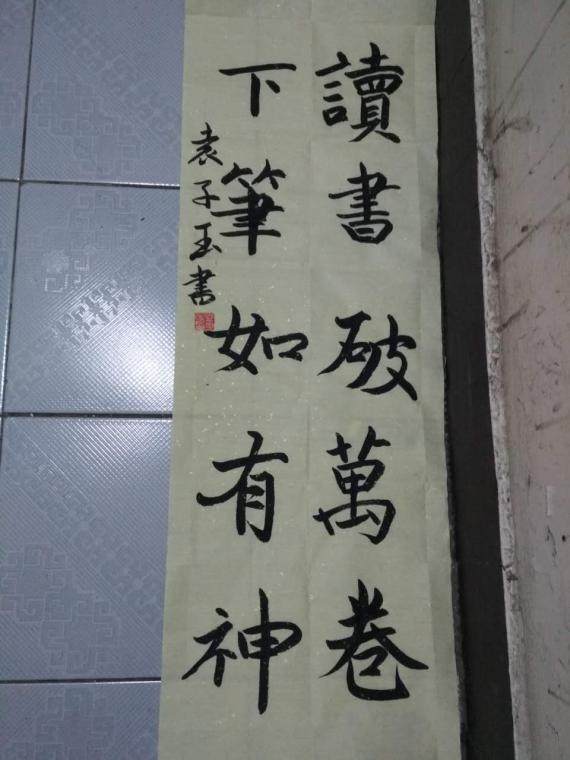 讀書破萬卷
下筆如有神
袁子玉書